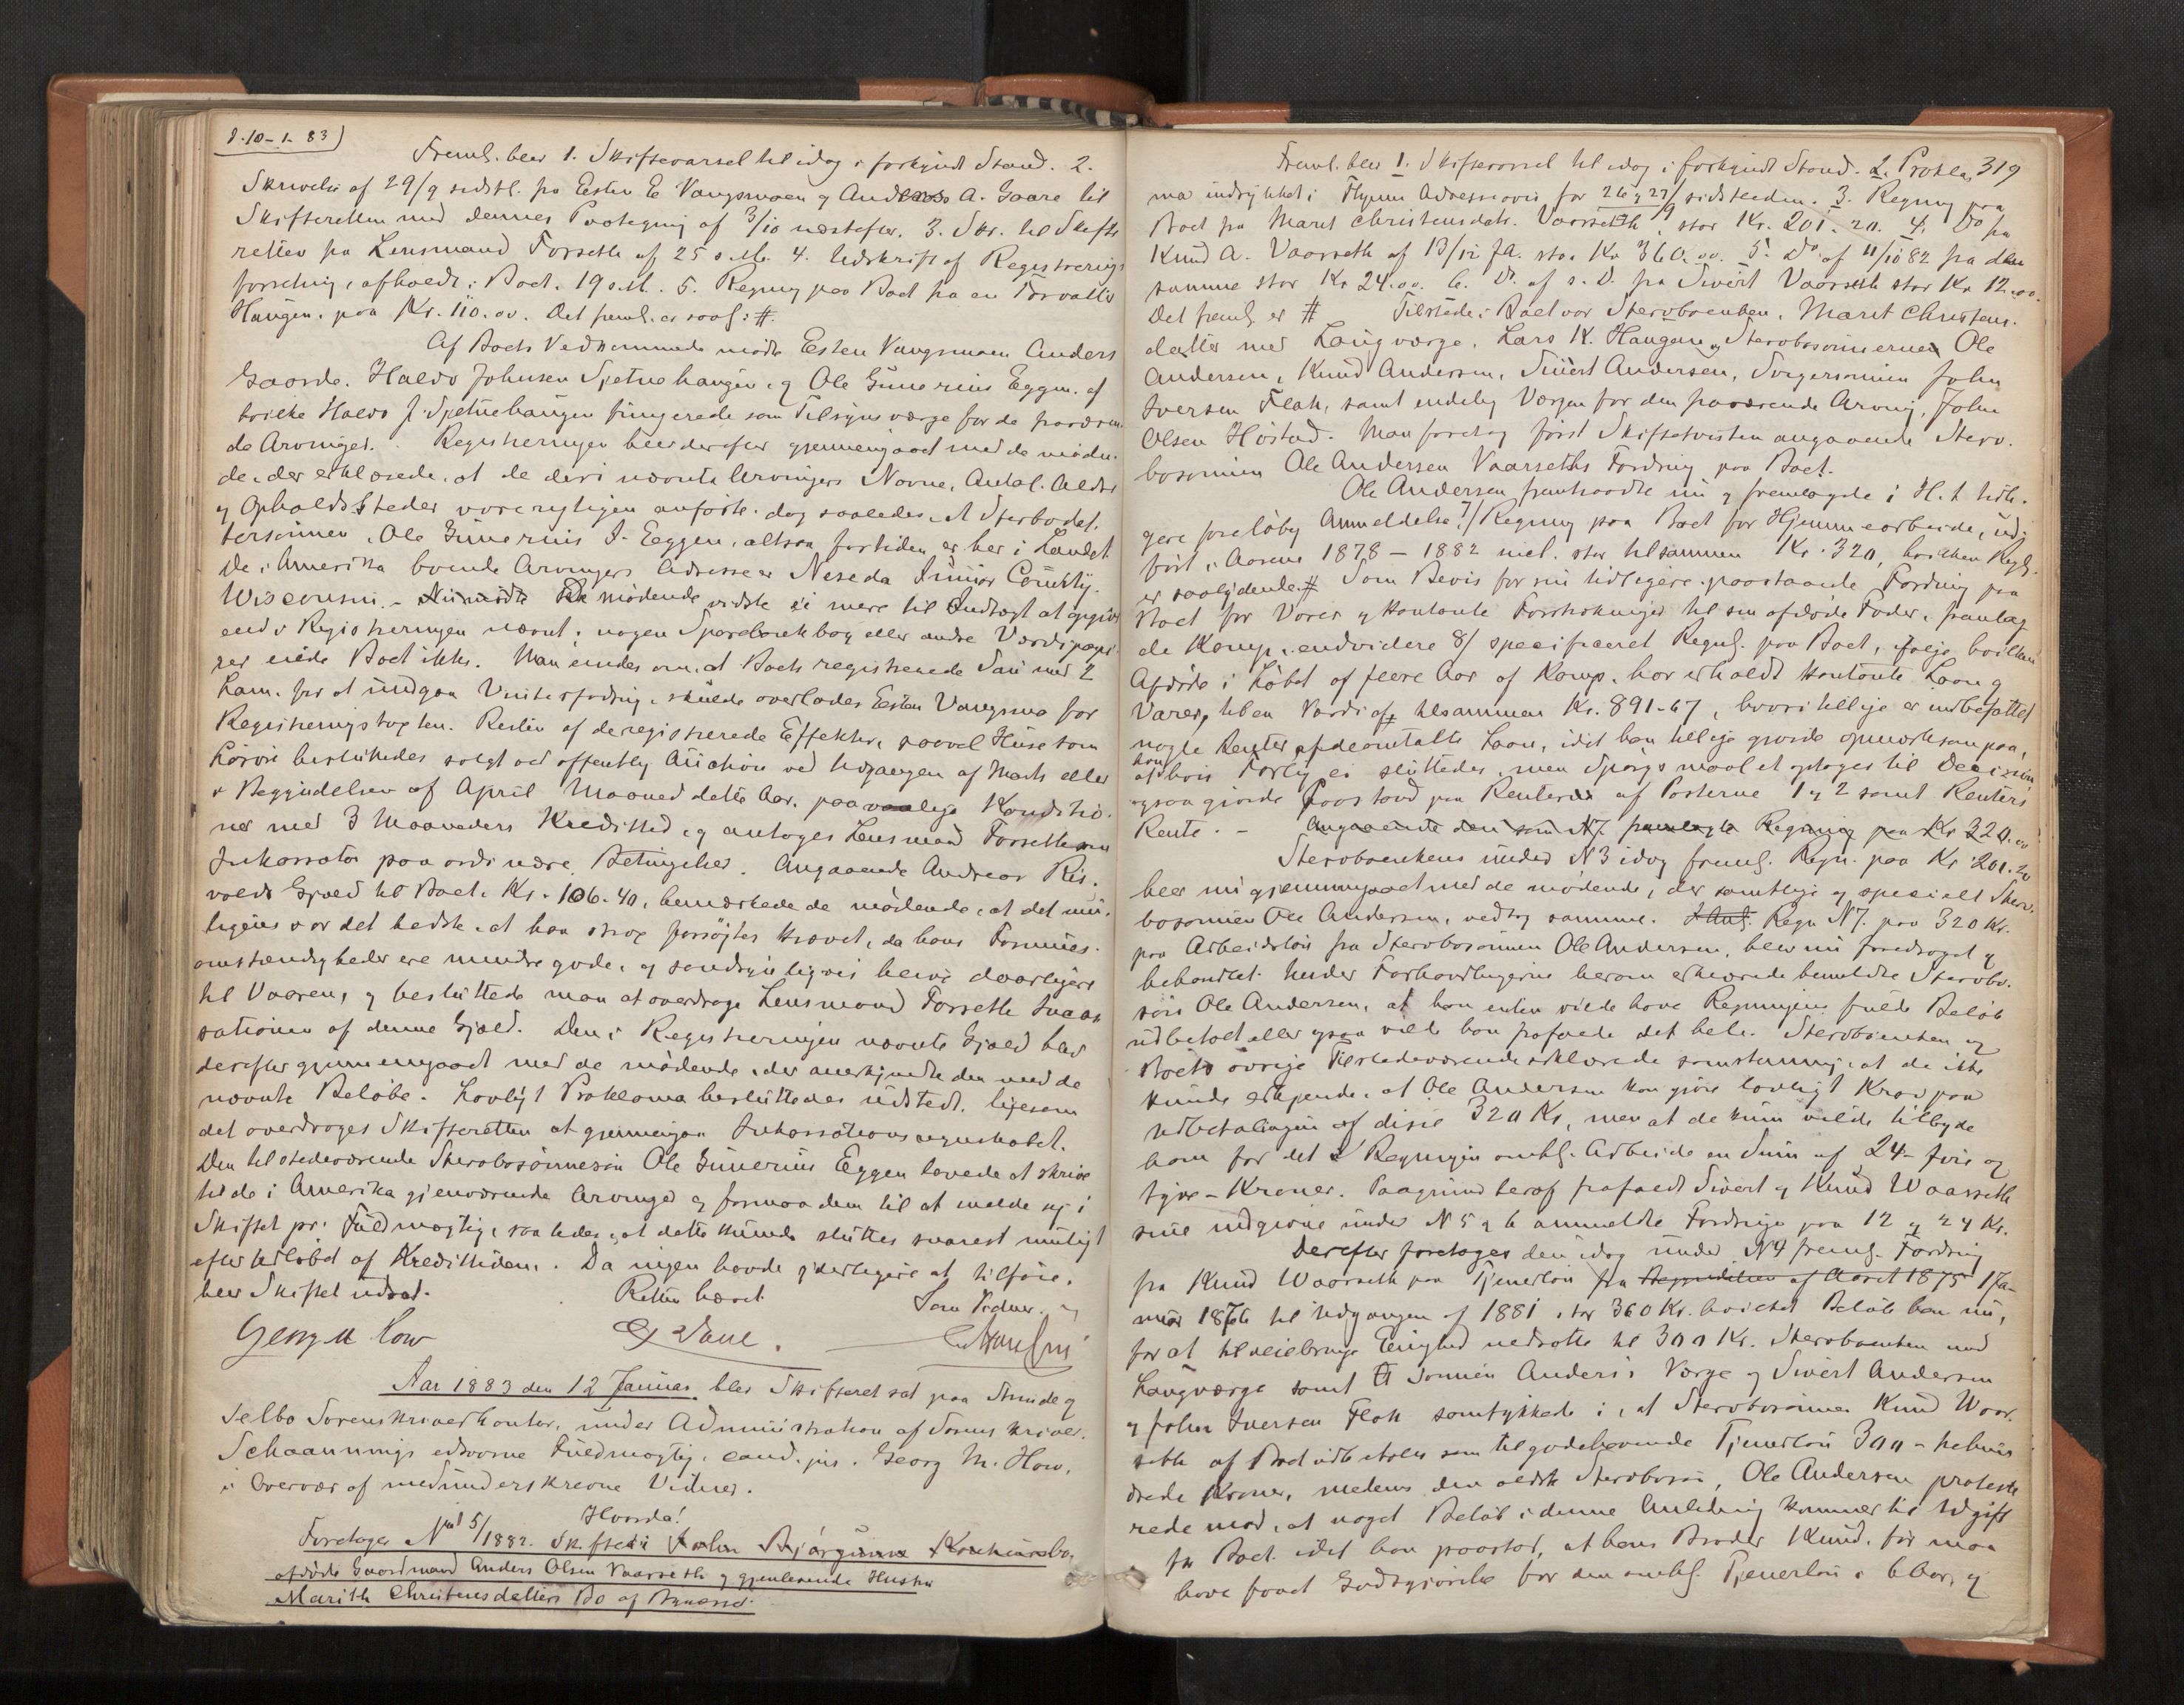 d. 10-1-83)
Freml. blev 1. Skiftevarsel til idag i forkyndt Stand. 2.
Skrivelse af 29/9 sidstl. fra Esten E Vangsmoen og Anders A. Gaare til
Skifteretten med dennes Paategning af 3/10 næstefter. 3. Skr. til Skifte
retten fra Lensmand Forseth af 25 s. M. 4. Udskrift af Registrerings
forretning, afholdt i Boet 19 s. M. 5. Regning paa Boet fra
Haugen paa Kr. 110.00. Det freml. er saal: #.
Af Boets Vedkommende mødte Esten Vangsmoen Anders
Gaarde. Haldo Johnsen Spetnehaugen, og Ole Gunerius Eggen, af
hvilke Haldo J. Spetnehaugen fungerede som Tilsynsværge for de fraværen
de Arvinger. Registreringen blev derefter gjennemgaaet med de møden-
de, der erklærede, at de deri nævnte Arvingers Navne, Antal, Alder
og Opholdssteder vare rigtigen anførte, dog saaledes, at Sterbodat-
tersønnen, Ole Gunerius J. Eggen, altsaa fortiden er her i Landet
De i Amerika boende Arvingers Adresse er Neseda Juniar County.
Wisconsin. - De mødende vidste ei mere til Indtægt at opgive
end i Registreringen nævnt; nogen Sparebankbog eller andre Værdipapi-
rer eiede Boet ikke. Man enedes om, at Boets registrerede Sau med 2
Lam, for at undgaa Vinterfodring, skulde overlades Esten Vangsmo for
Registreringstaxten. Resten af de registrerede Effekter, saavel Huse som
Løsøre besluttedes solgt ved offentlig Auktion ved Udgangen af Marts eller
i Begyndelsen af April Maaned dette Aar, paa vanlige Konditio-
ner med 3 Maaneders Kredittid, og antoges Lensmand Forseth som
Inkassator paa ordinære Betingelser. Angaaende Andreas Ris-
volds Gjæld til Boet, Kr. 106.40, bemærkede de mødende, at det mu-
ligens var det bedste, at han strax forsøgtes krævet, da hans Formues-
omstændigheder ere mindre gode, og sandsynligvis bliver daarligere
til Vaaren, og besluttede man at overdrage Lensmand Forseth Inkas
sationen af denne Gjæld. Den i Registreringen nævnte Gjæld blev
derefter gjennemgaaet med de mødende, der anerkjendte den med de
nævnte Beløbe. Lovligt Proklama besluttedes udstedt, ligesom
det overdroges Skifteretten at gjennemgaa Inkassationsregnskabet.
Den tilstedeværende Sterbosønnesøn Ole Gunerius Eggen lovede at skrive
til de i Amerika gjenværende Arvinger og formaa dem til at melde sig i
Skiftet pr. Fuldmægtig, saaledes, at dette kunde sluttes snarest muligt
efter Udløbet af Kredittiden. Da ingen havde yderligere at tilføre,
blev Skiftet udsat. Retten hævet Som Vidner.
Georg M How
Aar 1883 den 12 Januar blev Skifteret sat paa Strinde og
Selbo Sorenskriverkontor, under Administration af Sorenskriver
Schaannings edsvorne Fuldmægtig, cand. jur. Georg M. How,
i Overvær af medunderskrevne Vidner.
Hvorda!
Foretoges No 5/1882. Skifte i
afdøde Gaardmand Anders Olsen Vaarseths og gjenlevende Hustru
Marith Christensdatters Bo af Bynesset.
319
Freml. blev 1. Skiftevarsel til idag i forkyndt Stand. 2. Prokla-
ma indrykket i Thjems Adresseavis for 26 og 27/9 sidstleden. 3. Regning paa
Boet fra Marit Christensdatr. Vaarseth, stor Kr. 201.20. 4. Do fra
Knud A. Vaarseth af 13/12 f.A. stor Kr 360.00. 5. Do af 11/10 82 fra den
samme stor Kr 24.00. 6. D. af s. D. fra Sivert Vaarseth stor Kr 12.00.
Det freml. er # Tilstede i Boet var Stervboenken, Marit Christens-
datter med Laugværge, Lars K. Haugan, Stervbosønnerne Ole
Andersen, Knud Andersen, Sivert Andersen, Svigersønnen John
Iversen Flak, samt endelig Værgen for den fraværende Arving, John
Olsen Høstad. Man foretog først Skiftetvisten angaaende Sterv-
bosønnen Ole Andersen Vaarseths Fordring paa Boet.
Ole Andersen fremtraadte nu og fremlagde i H. t. tidli-
gere foreløbig Anmeldelse 7/ Regning paa Boet for Hjemmearbeide, ud-
ført i Aarene 1878 - 1882 incl. stor tilsammen Kr. 320, hvilken Regn.
er saalydende # Som Bevis for sin tidligere paastaaede Fordring paa
Boet for Varer og kontante Forstrækninger til sin afdøde Fader, fremlag
de Komp. endvidere 8/ specificeret Regng. paa Boet, ifølge hvilken
Afdøde i Løbet af flere Aar af Komp. har erholdt kontante Laan og
Varer, til en Værdi af tilsammen Kr. 891-67, hvori tillige er indbefattet
nogle Renter af de omtalte Laan, idet han tillige gjorde opmærksom paa,
at hvis Forlig ei sluttedes, men Spørgsmaalet optoges til Decision
han ogsaa gjorde Paastand paa Renterne af Posterne 1 og 2 samt Renters
Rente. - Angaaende den sub N 7. fremlagte Regning paa Kr 320.00
Stervboenkens under N 3 idag freml. Regn. paa Kr 201.20
blev nu gjennemgaaet med de mødende, der samtlige og specielt Sterv-
bosønnen Ole Andersen, vedtog samme. Regn N 7. paa 320 Kr.
paa Arbeidsløn fra Stervbosønnen Ole Andersen, blev nu foredraget og
behandlet. Under Forhandlingerne herom erklærede bemeldte Stervbo-
søn Ole Andersen, at han enten vilde have Regningens fulde Beløb
udbetalt eller ogsaa vilde han frafalde det hele. Stervboenken og
Boets øvrige Tilstedeværende erklærede samstemmig, at de ikke
kunde erkjende, at Ole Andersen kan gjøre lovligt Krav paa
Udbetalingen af disse 320 Kr, men at de kun vilde tilbyde
ham for det i Regningen omhl. Arbeide en Sum af 24 - fire og
tyve - Kroner. Paagrund heraf frafaldt Sivert og Knud Waarseth
sine indgivne under N 5 og 6 anmeldte Fordringer paa 12 og 24 Kr.
Derefter foretoges den idag under N 4 freml. Fordring
fra Knud Waarseth paa Tjenerløn fra Begyndelsen af Aaret 1875 1 Ja-
nuar 1876 til Udgangen af 1881, stor 360 Kr. hvilket Beløb han nu,
for at tilveiebringe Enighed nedsatte til 300 Kr. Stervboenken med
Laugværge samt Sønnen Anders's Værge og Sivert Andersen
og John Iversen Flak samtykkede i, at Stervbosønnen Knud Waar-
seth af Boet udbetales som tilgodehavende Tjenerløn 300 - trehun-
drede Kroner, medens den ældste Stervbosøn, Ole Andersen proteste
rede mod, at noget Beløb i denne Anledning kommer til Udgift
for Boet idet han paastod, at hans Broder Knud, før maa
have faaet Godtgjørelse for den omhl. Tjenerløn i 6 Aar, og